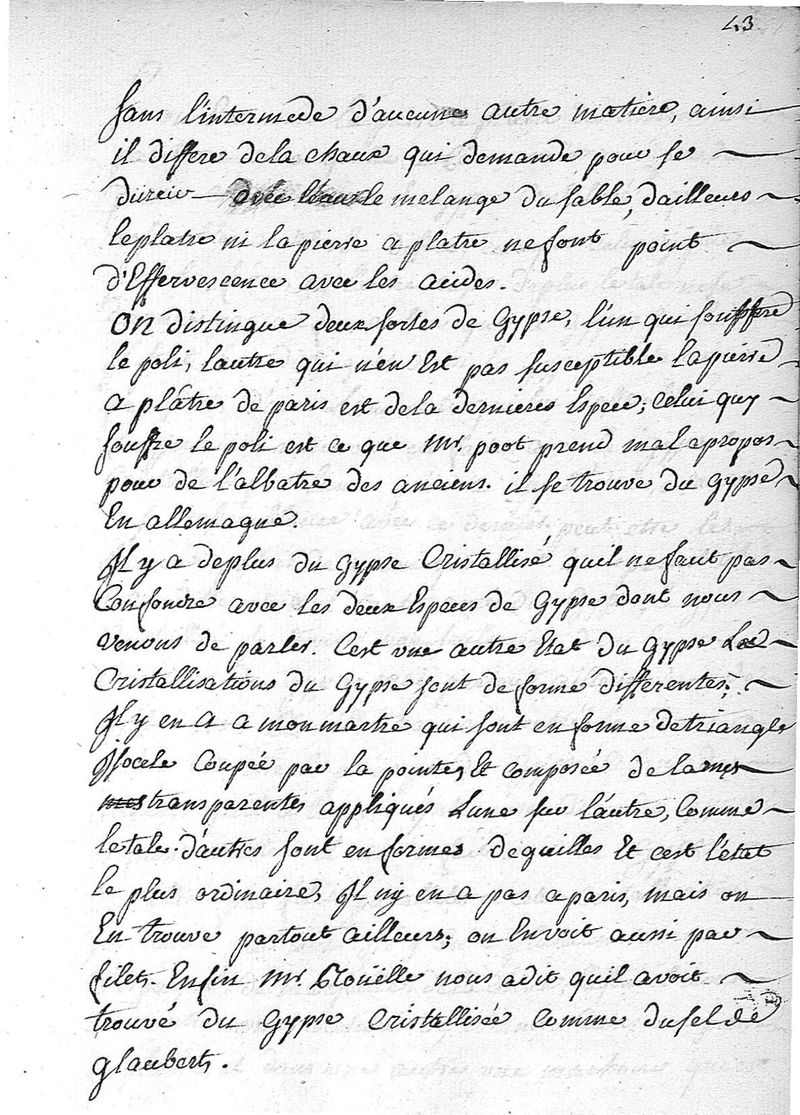 43
sans l'intermede d'aucune autre matiere, ainsi
il differe dela chaux qui demande pour se
durcir avec l'eau le melange du sable, dailleurs
leplatre ni lapierre a platre nefont point
d'Effervescence avec les acides.
On distingue deux sortes de Gypse, l'un qui souffre
le poli, lautre qui n'en Est pas susceptible lapierre
a plâtre de paris est dela derniere Espece; Celui quy
souffre le poli est ce que Mr. poot prend malapropos
pour de l'albatre des anciens. il se trouve du gypse
En allemagne.
Il y a deplus du gypse Cristallisé quil ne faut pas
Confondre avec les deux Especes de Gypse dont nous
venons de parler. C'est une autre Etat du Gypse Les
Cristallisations du Gypse sont de forme differentes;
Il y en a a monmartre qui sont en forme detriangle
Isocele Coupée par la pointe, Et composée de lames
transparentes appliqués L'une sur l'autre, Comme
letalc. d'autres sont en formes deguilles Et c'est l'état
le plus ordinaire, Il n'y en a pas a paris, mais on
En trouve partout ailleurs; on En voit aussi par
filets. Enfin Mr. Roüelle nous adit quil avoit
trouvé du Gypse Cristallisée Comme dusel de
glauberts.